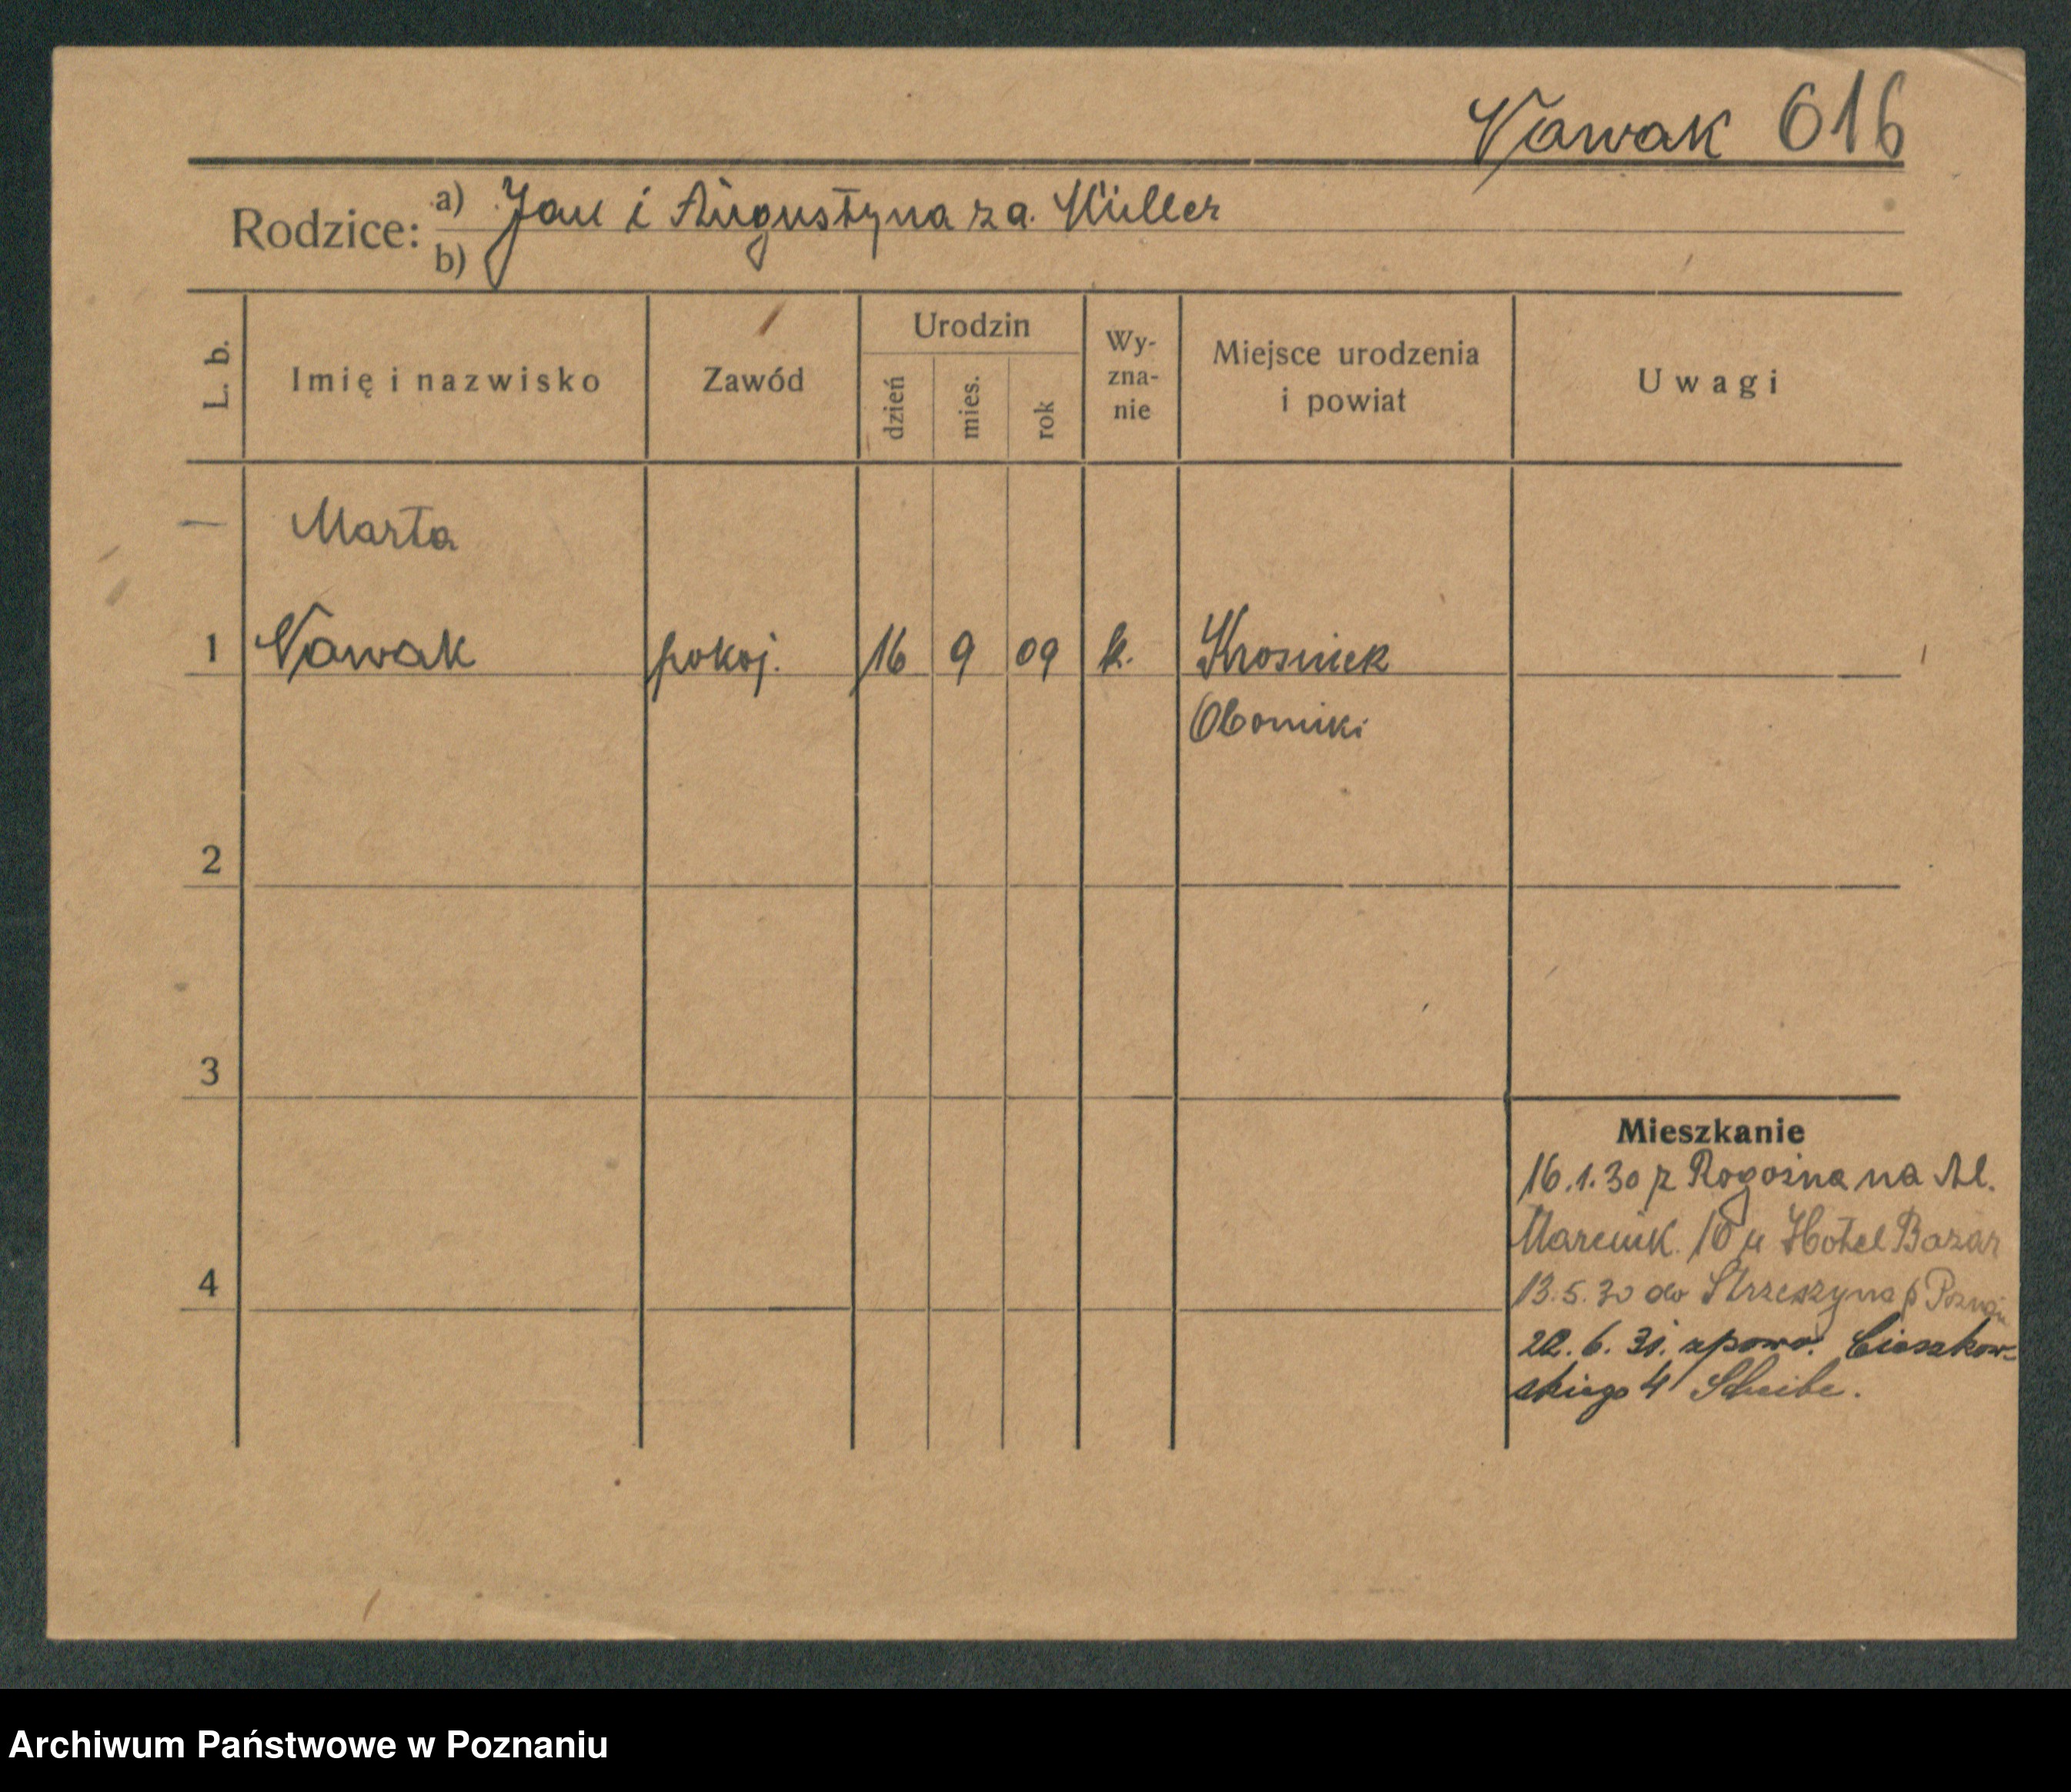 Nowak 616
Rodzice: a) Jan i Augustyna z d. Müller
b)
L. b. Imię i nazwisko Zawód Urodzin dzień mies. rok Wy-zna-nie Miejsce urodzenia i powiat Uwagi
Marta
1 Nowak pokoj. 16 9 09 k. Krosinek
Oborniki
2
3
Mieszkanie
16.1.30 z Rogoźna na Al.
Marcink. 10 u Hotel Bazar
4
13.5.30 do Strzeszyna p Poznań
22.6.31. zpowr. Cieszkow-
skiego 4 Scheibe.
Archiwum Państwowe w Poznaniu